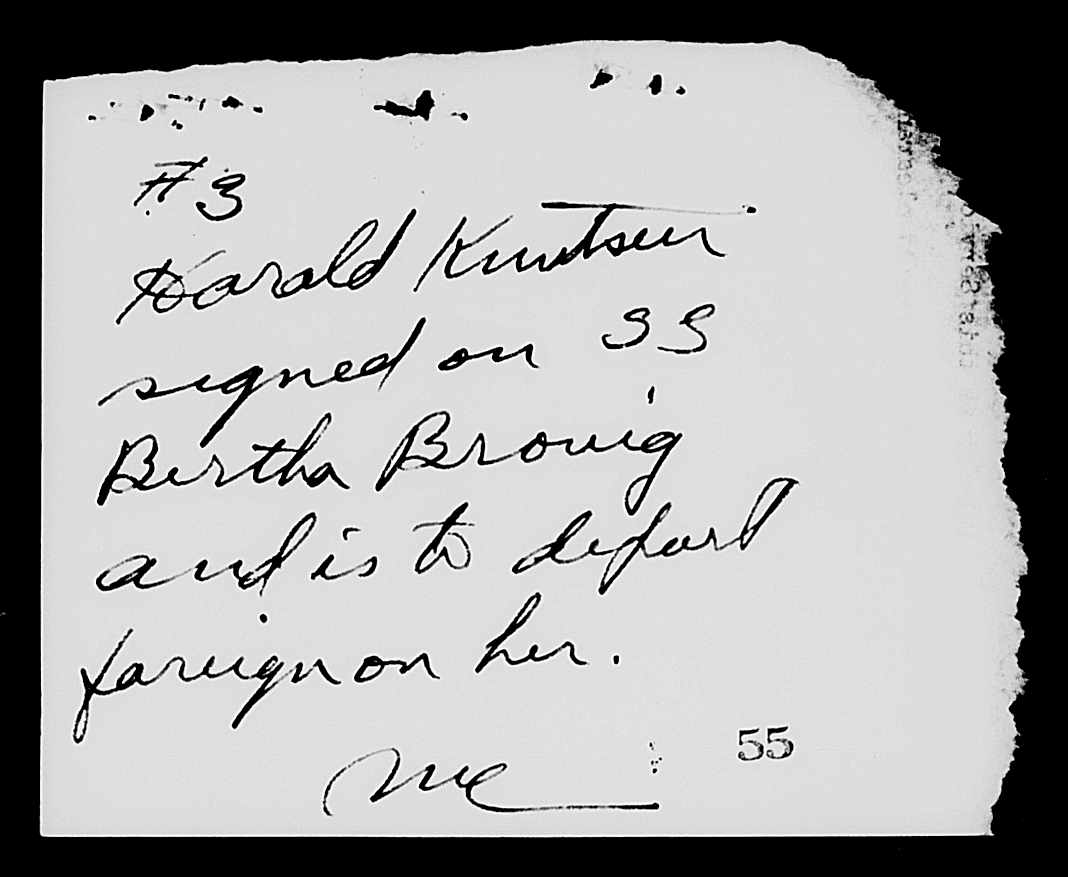 #3
Harald Knutsen
signed on SS
Bertha Brovig
and is to depart
foreign on her.
55